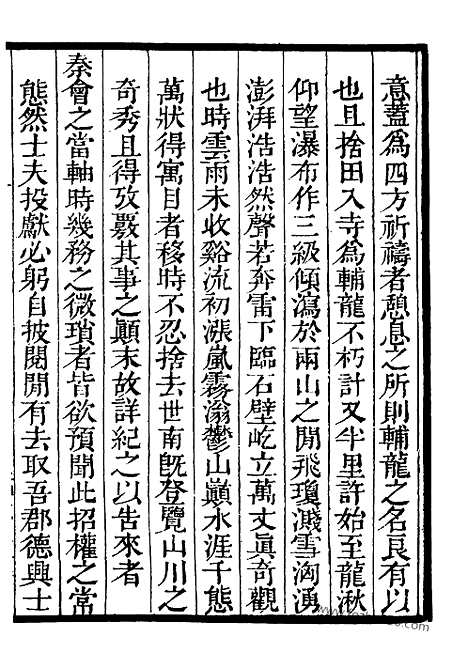 意蓋爲四方祈禱者憩息之所則輔龍之名良有以
也且捨田入寺爲輔龍不朽計又半里許始至龍湫
仰望瀑布作三級傾瀉於兩山之閒飛瓊濺雪洶湧
澎湃浩浩然聲若奔雷下臨石壁屹立萬丈眞奇觀
也時雲雨未收谿流初漲嵐霧滃鬱山巔水涯千態
萬狀得寓目者移時不忍捨去世南旣登覽山川之
奇秀且得攷覈其事之顚末故詳紀之以告來者
秦會之當軸時幾務之微瑣者皆欲預聞此招權之常
態然士夫投獻必躬自披閱閒有去取吾郡德興士